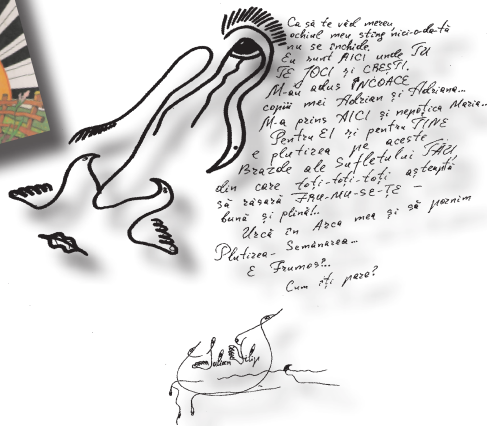 Ca să te văd mereu,
ochiul meu stîng nici-o-da-tă
nu se închide.
Eu sunt AICI unde TU
TE JOCI și CREȘTI.
M-au adus ÎNCOACE
copiii mei Adrian și Adriana...
M-a prins AICI și nepoțica Maria...
Pentru EI și pentru TINE
e plutirea pe aceste
Brazde ale Sufletului TĂU
din care toți-toți-toți așteaptă
să răsară FRU-MU-SE-ȚE —
bună și plină!..
Urcă în Arca mea și să pornim
Plutirea- Semănarea...
E Frumos?..
Cum îți pare?
Iulian Filip